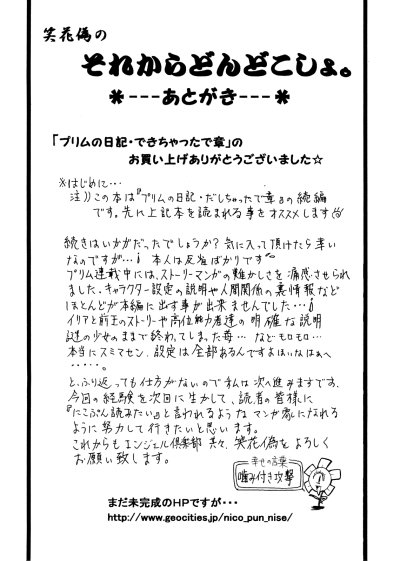 笑花偽の
それからどんどこしょ。
＊---あとがき---＊
「プリムの日記・できちゃったで章」の
お買い上げありがとうございました☆
※はじめに…
注))この本は『プリムの日記・だしちゃったで章』の続編
です。先に上記本を読まれる事をオススメします
続きはいかがだったでしょうか？気に入って頂けたら幸い
なのですが…！本人は反省ばかりです
プリム連載中には、ストーリーマンガの難かしさを痛感させられ
ました。キャラクター設定の説明や人間関係の裏情報など
ほとんどが本編に出す事が出来ませんでした…！
イリアと前王のストーリーや高位能力者達の明確な説明
謎の少女のままで終わってしまった苺…などモロモロ…
本当にスミマセン。設定は全部あるんですよ
・・・・・。
と、ふり返っても仕方がないので私は次へ進みます。
今回の経験を次回に生かして、読者の皆様に
『にこぷん読みたい』と言われるようなマンガ家になれる
ように努力して行きたいと思います。
これからもエンジェル倶楽部共々、笑花偽をよろしく
お願い致します。
幸せの言葉
噛み付き攻撃
まだ未完成のHPですが・・・
http://www.geocities.jp/nico_pun_nise/